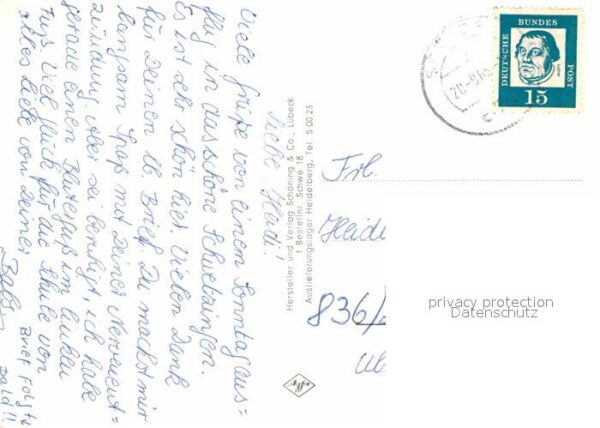 Liebe Heidi!
Viele Grüße von einem Sonntagaus=
flug in das schöne Schwetzingen.
Es ist sehr schön hier. Vielen Dank
für Deinen lb. Brief. Du machst mir
Spaß mit Deiner Nervenent=
zündung. Aber sei beruhigt, ich habe
gerade einen Bluterguß im linken
Fuß. Viel Glück für die Schule von
Alles Liebe von Deiner
Brief folgt
bald!!
Hersteller und Verlag Schöning & Co., Lübeck
Bestellnr. Schwe 18
Auslieferungslager Heidelberg, Tel. 5 00 23
Agfa
DEUTSCHE BUNDES POST
15
Frl.
Heidi
836/
privacy protection
Datenschutz